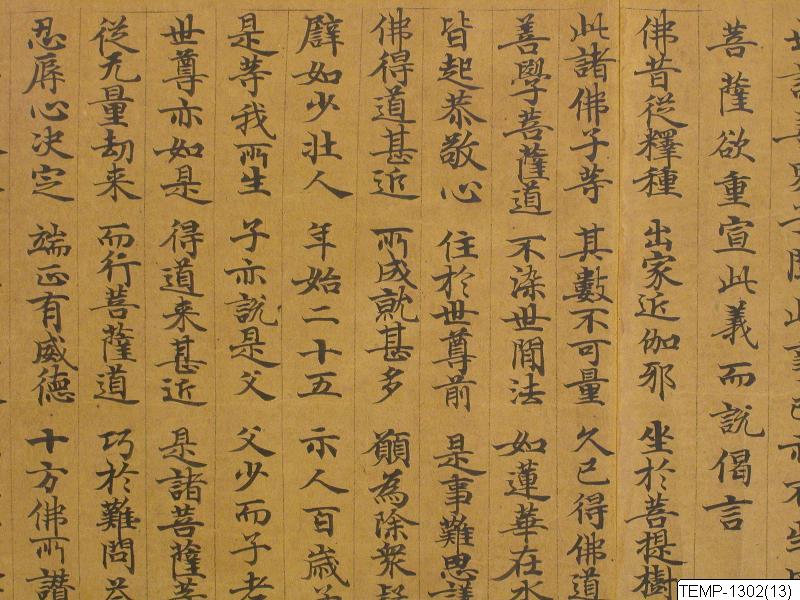 此
菩薩欲重宣此義而說偈言
佛昔從釋種 出家近伽耶 坐於菩提樹
此諸佛子等 其數不可量 久已得佛道
善學菩薩道 不染世間法 如蓮華在水
皆起恭敬心 住於世尊前 是事難思議
佛得道甚近 所成就甚多 願為除衆疑
譬如少壯人 年始二十五 示人百歲子
是等我所生 子亦說是父 父少而子老
世尊亦如是 得道来甚近 是諸菩薩等
從无量劫来 而行菩薩道 巧於難問荅
忍辱心决定 端正有威德 十方佛所讃
TEMP-1302(13)